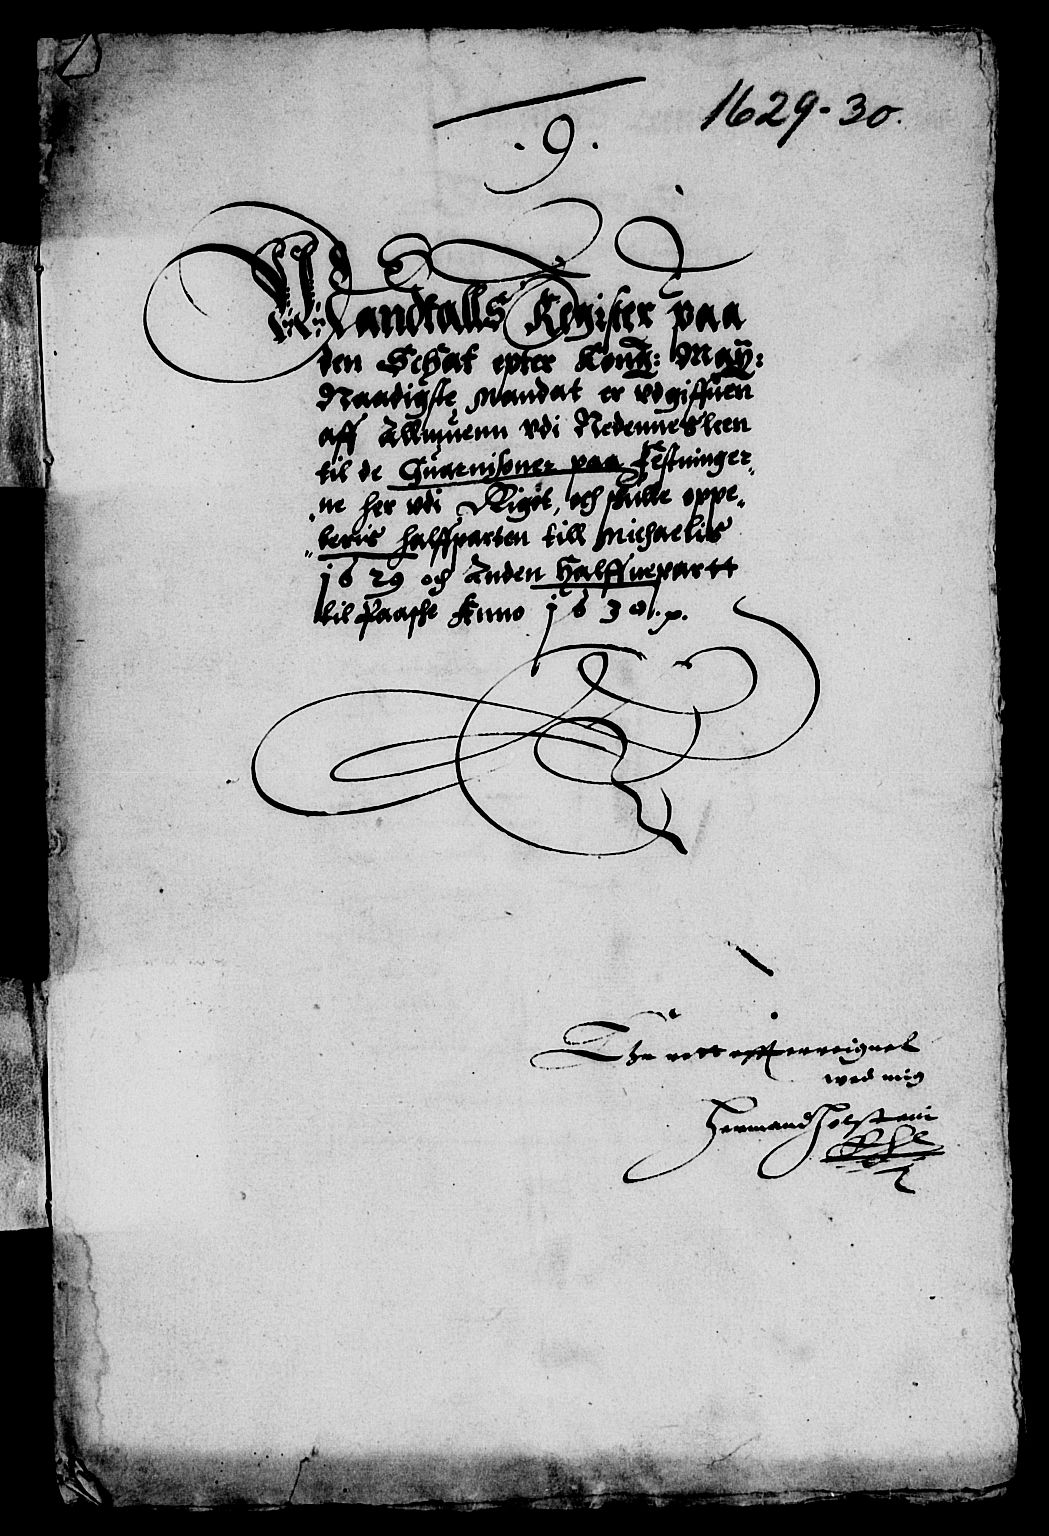 1629-30.
.9.
Mandtalls Register paa
den Schat epter Kong: May:
Naadigste Mandat er vdgiffuen
aff Allmuenn vdi Nedennes Leen
til de Guarnisoner paa Festninger„
„ne her vdi Riget, och skulle oppe„
„beris halfparten till Michaelis
1629 och Anden Halffuepartt
til Paaske Anno 1630.p.
wed mig
Hermand Holstein